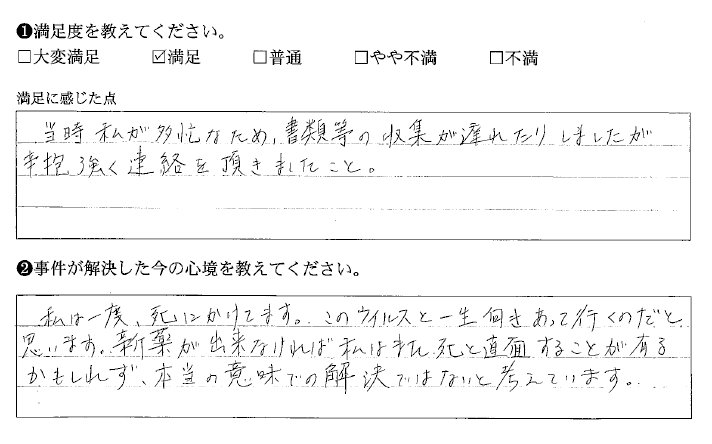 ❶満足度を教えてください。
□大変満足 ☑満足 □普通 □やや不満 □不満
満足に感じた点
当時私が多忙なため、書類等の収集が遅れたりしましたが
辛抱強く連絡を頂きましたこと。
❷事件が解決した今の心境を教えてください。
私は一度、死にかけてます。このウイルスと一生向きあって行くのだと
思います。新薬が出来なければ私はまた死と直面することが有る
かもしれず、本当の意味での解決ではないと考えています。